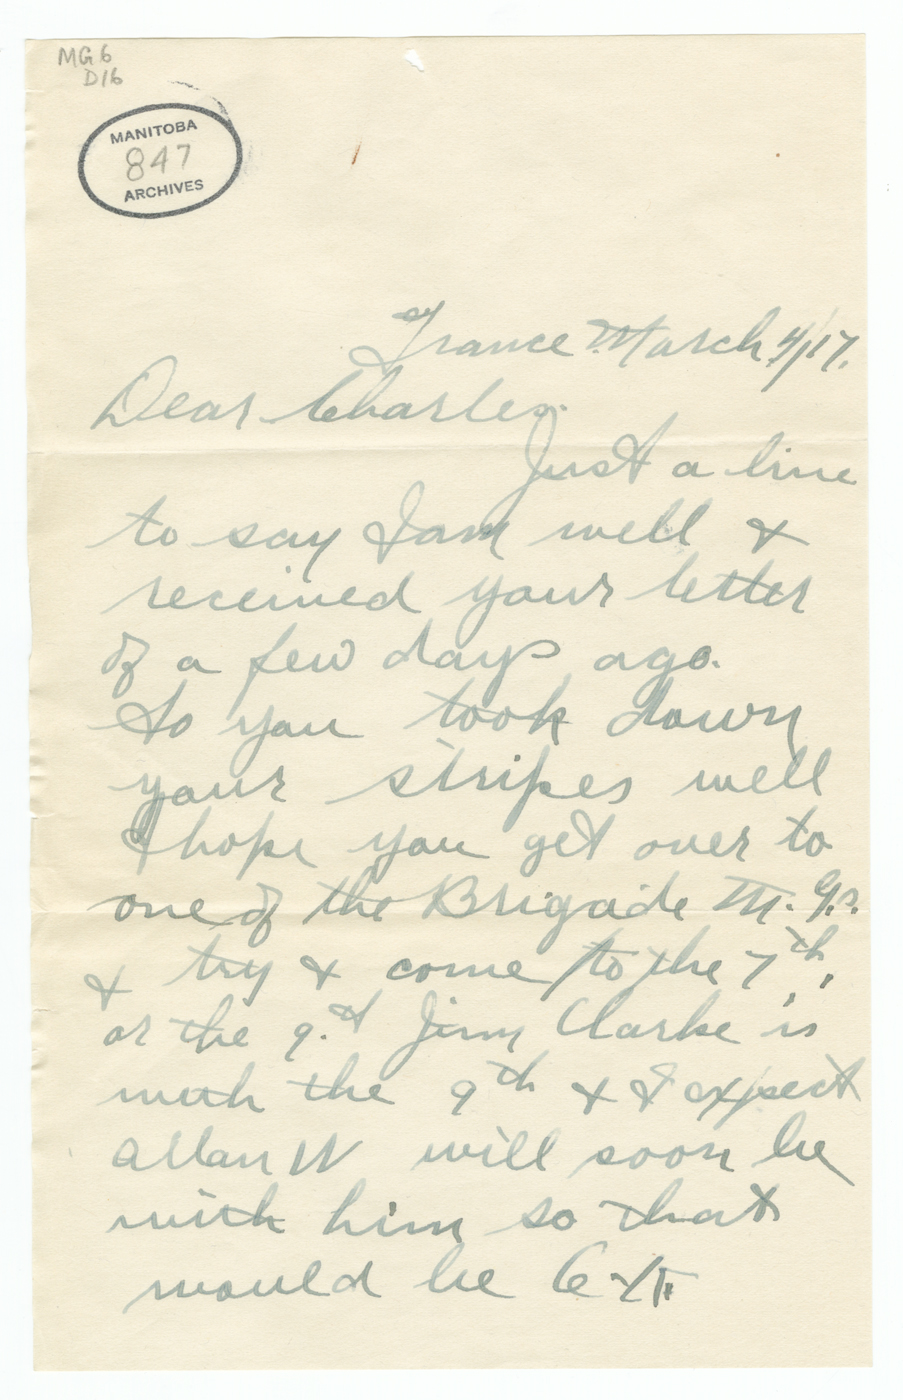 MG6
D16
MANITOBA
847
ARCHIVES
France March 4/17.
Dear Charles.
Just a line
to say I am well &
received your letter
of a few days ago.
So you took down
your stripes well
I hope you get over to
one of the Brigade M. G.s.
& try & come to the 7th,
or the 9th Jimy Clarke is
with the 9th & I expect
Allan W will soon be
with him so that
would be